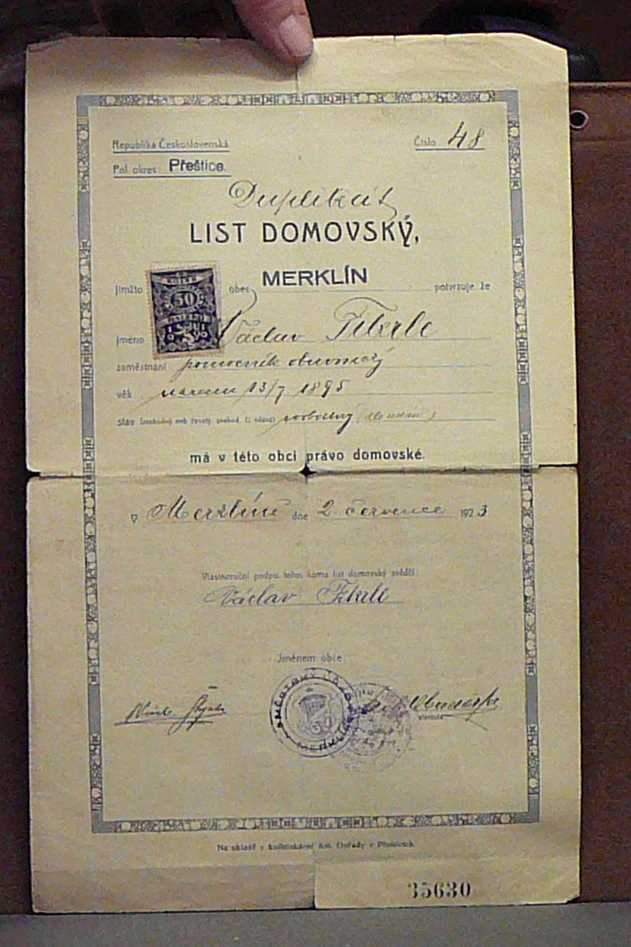 Republika Československá
Číslo 48
Pol. okres: Přeštice.
Duplikát
LIST DOMOVSKÝ,
Jímžto obec MERKLÍN potvrzuje, že
jméno Václav
zaměstnání pomocník obuvnický
věk narozen 13/7 1895
stav svobodný
má v této obci právo domovské.
V Merklíně dne 2. července 1923
Vlastnoruční podpis toho, komu list domovský svědčí:
Václav
Jménem obce:
MĚSTSKÝ ÚŘAD
MERKLÍN
starosta
Na skladě v knihtiskárně Ant. v Přešticích.
35630